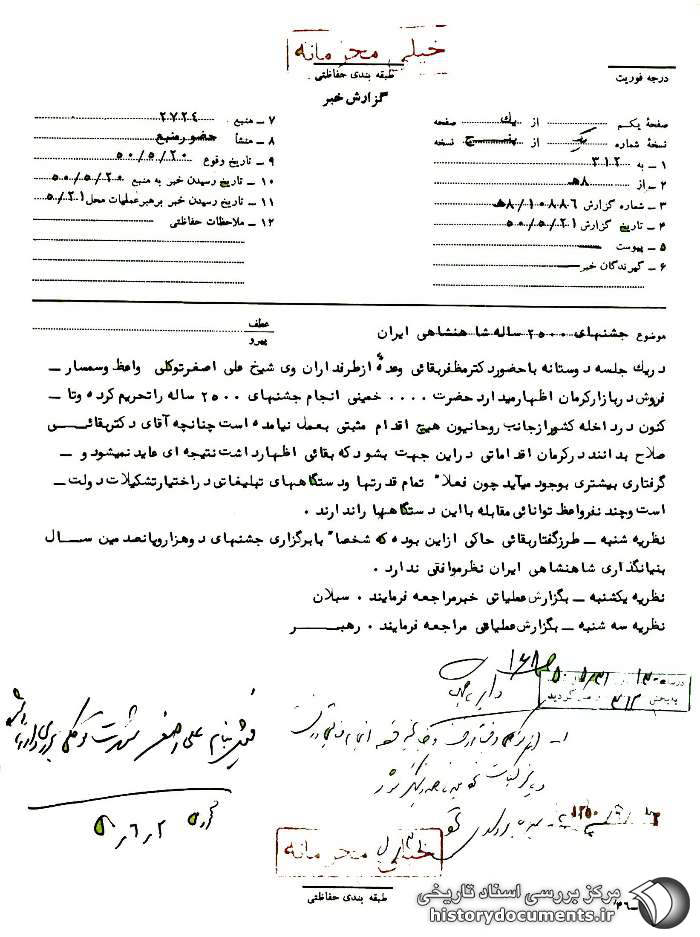 خیلی محرمانه
طبقه بندی حفاظتی
درجه فوریت
گزارش خبر
صفحهٔ یکم از یک صفحه
نسخهٔ شماره یک از پنج نسخه
۱ – به ۳۱۲
۲ – از ۸ﻫ
۳ – شماره گزارش ۱۰۸۸۶/۸ﻫ
۴ – تاریخ گزارش ۵۰/۵/۲۱
۵ – پیوست
۶ – گیرندگان خبر
۷ – منبع ۲۷۲۴
۸ – منشأ حضور منبع
۹ – تاریخ وقوع ۵۰/۵/۲۰
۱۰ – تاریخ رسیدن خبر به منبع ۵۰/۵/۲۰
۱۱ – تاریخ رسیدن خبر برهبر عملیات محل ۵/۲۱
۱۲ – ملاحظات حفاظتی
موضوع جشنهای ۲۵۰۰ ساله شاهنشاهی ایران
عطف
پیرو
در یک جلسه دوستانه با حضور دکتر مظفر بقائی وعده‌ای از طرفداران وی شیخ علی اصغر توکلی واعظ وسمسار –
فروش در بازار کرمان اظهار میدارد حضرت .... خمینی انجام جشنهای ۲۵۰۰ ساله را تحریم کرده وتا –
کنون در داخله کشور از جانب روحانیون هیچ اقدام مثبتی بعمل نیامده است چنانچه آقای دکتر بقائی
صلاح بدانند در کرمان اقداماتی در این جهت بشود که بقائی اظهار داشت نتیجه ای عاید نمیشود و –
گرفتاری بیشتری بوجود میآید چون فعلا" تمام قدرتها ودستگاههای تبلیغاتی در اختیار تشکیلات دولت –
است وچند نفر واعظ توانائی مقابله با این دستگاهها را ندارند .
نظریه شنبه – طرز گفتار بقائی حاکی از این بوده که شخصا" با برگزاری جشنهای دوهزار وپانصدمین سال
بنیانگذاری شاهنشاهی ایران نظر موافقی ندارد .
نظریه یکشنبه – بگزارش عملیاتی خبر مراجعه فرمایند . سبلان
نظریه سه شنبه – بگزارش عملیاتی مراجعه فرمایند . رهبر
خیلی محرمانه
طبقه بندی حفاظتی
مرکز بررسی اسناد تاریخی
historydocuments.ir